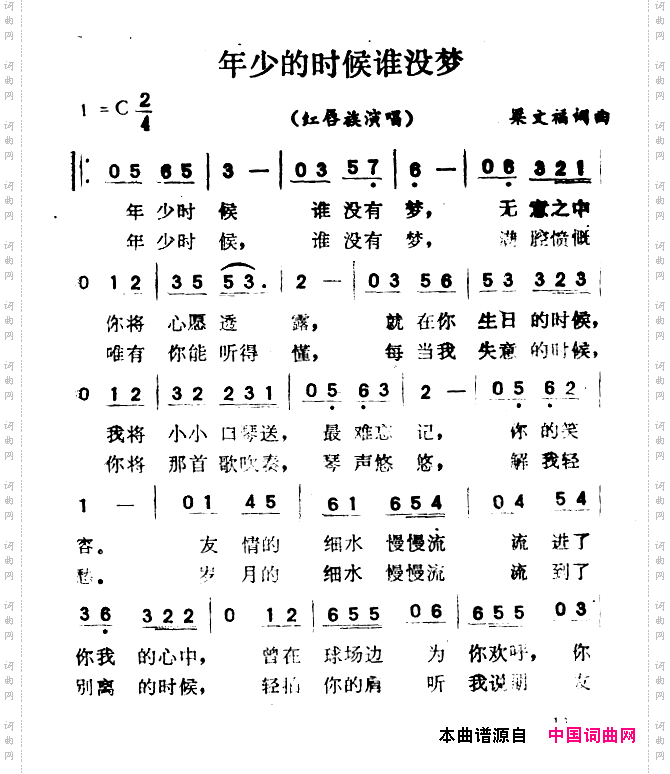 年少的时候谁没梦
1 = C 2/4
(红唇族演唱)
梁文福词曲
0 5 6 5 | 3 — | 0 3 5 7 | 6 — | 0 6 3 2 1 |
年 少时 候 谁 没有 梦， 无 意之中
年 少时 候， 谁 没有 梦， 满 腔愤慨
0 1 2 | 3 5 5 3. | 2 — | 0 3 5 6 | 5 3 3 2 3 |
你将 心愿 透 露， 就 在你 生日 的时候，
唯有 你能 听得 懂， 每 当我 失意 的时候，
0 1 2 | 3 2 2 3 1 | 0 5 6 3 | 2 — | 0 5 6 2 |
我将 小小 口琴送， 最 难忘 记， 你 的笑
你将 那首 歌吹奏， 琴 声悠 悠， 解 我轻
1 — | 0 1 4 5 | 6 1 6 5 4 | 0 4 5 4 |
容。 友 情的 细水 慢慢流 流 进了
愁。 岁 月的 细水 慢慢流 流 到了
3 6 3 2 2 | 0 1 2 | 6 5 5 0 6 | 6 5 5 0 3 |
你我 的心中， 曾在 球场边 为 你欢呼， 你
别离 的时候， 轻拍 你的肩 听 我说朋 友
本曲谱源自 中国词曲网
词曲网